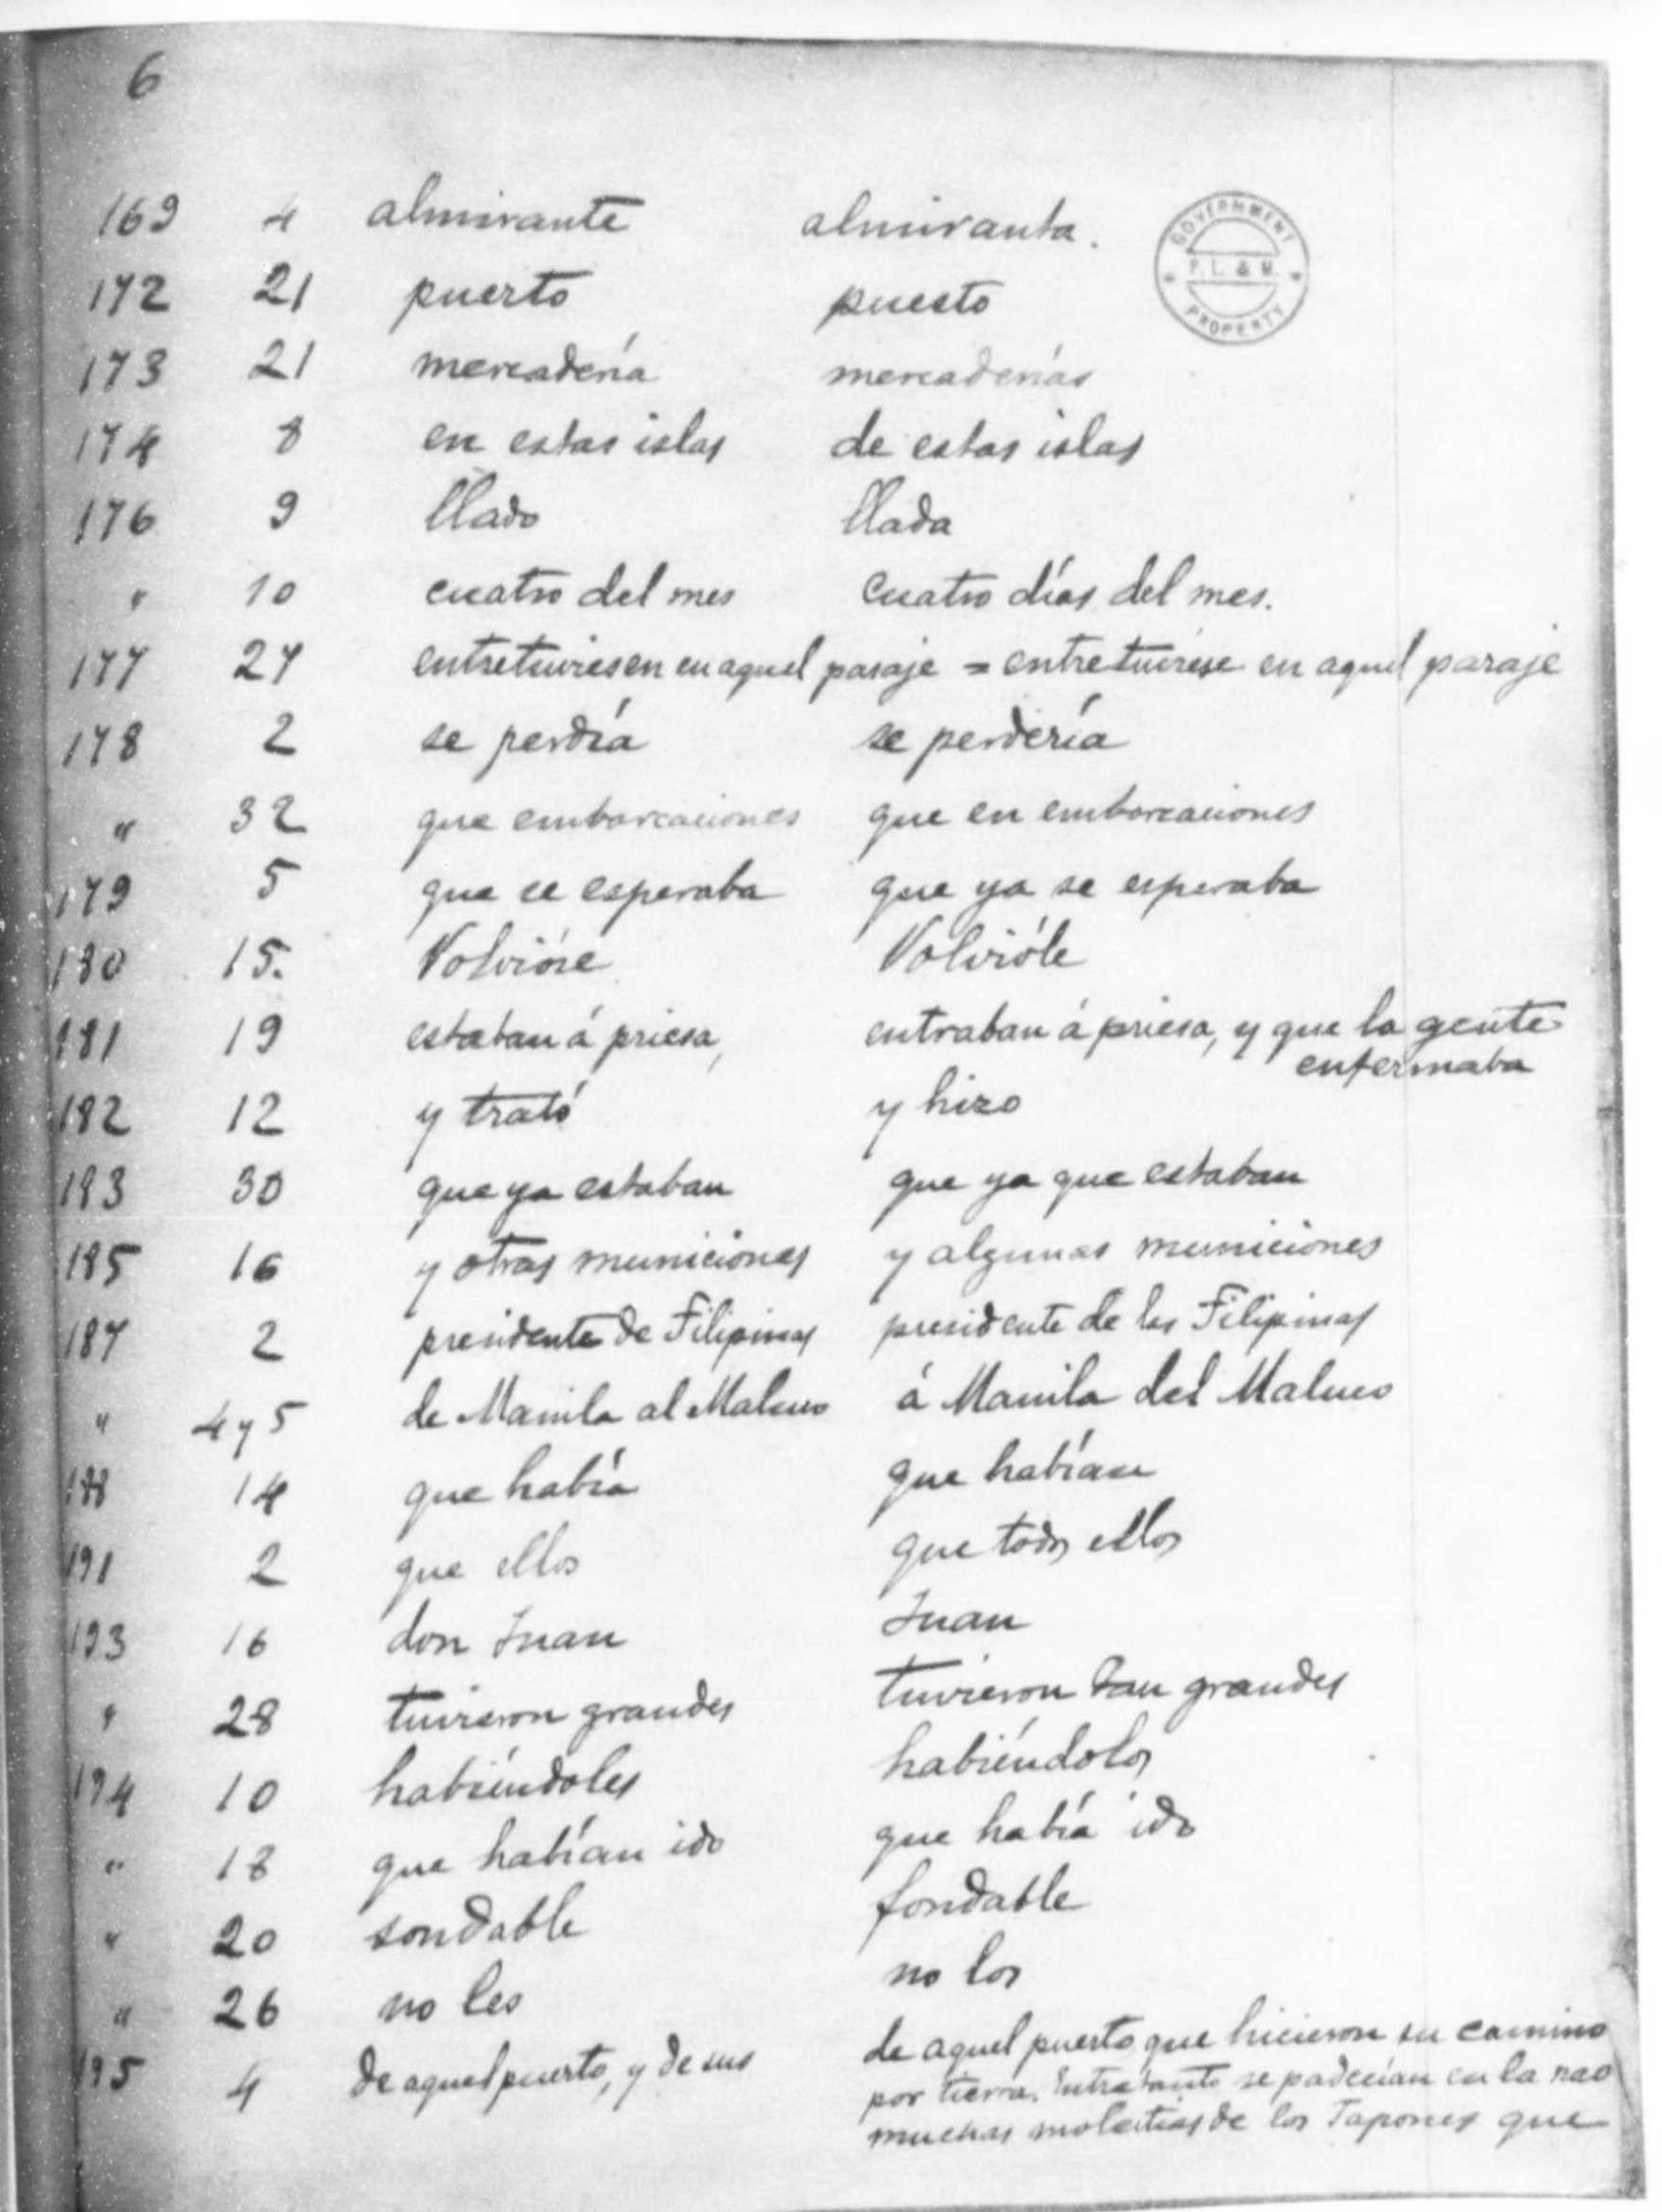 6
169 4 almirante almiranta.
GOVERNMENT
P. L. & M.
PROPERTY
172 21 puerto puesto
173 21 mercadería mercaderías
174 8 en estas islas de estas islas
176 9 llado llada
" 10 cuatro del mes Cuatro días del mes.
177 27 entretuviesen en aquel pasaje = entretuviese en aquel paraje
178 2 se perdía se perdería
" 32 que embarcaciones que en embarcaciones
179 5 que se esperaba que ya se esperaba
180 15. Volvióse Volvióle
181 19 estaban á priesa, entraban á priesa, y que la gente
enfermaba
182 12 y trató y hizo
183 30 que ya estaban que ya que estaban
185 16 y otras municiones y algunas municiones
187 2 presidente de Filipinas presidente de las Filipinas
" 4 y 5 de Manila al Maluco á Manila del Maluco
188 14 que había que habían
191 2 que ellos que todos ellos
193 16 don Juan Juan
" 28 tuvieron grandes tuvieron tan grandes
194 10 habiéndoles habiéndolos
" 18 que habían ido que había ido
" 20 sondable fondable
" 26 no les no los
195 4 de aquel puerto, y de sus de aquel puerto que hicieron su camino
por tierra. Entretanto se padecían en la nao
muchas molestias de los Japones que